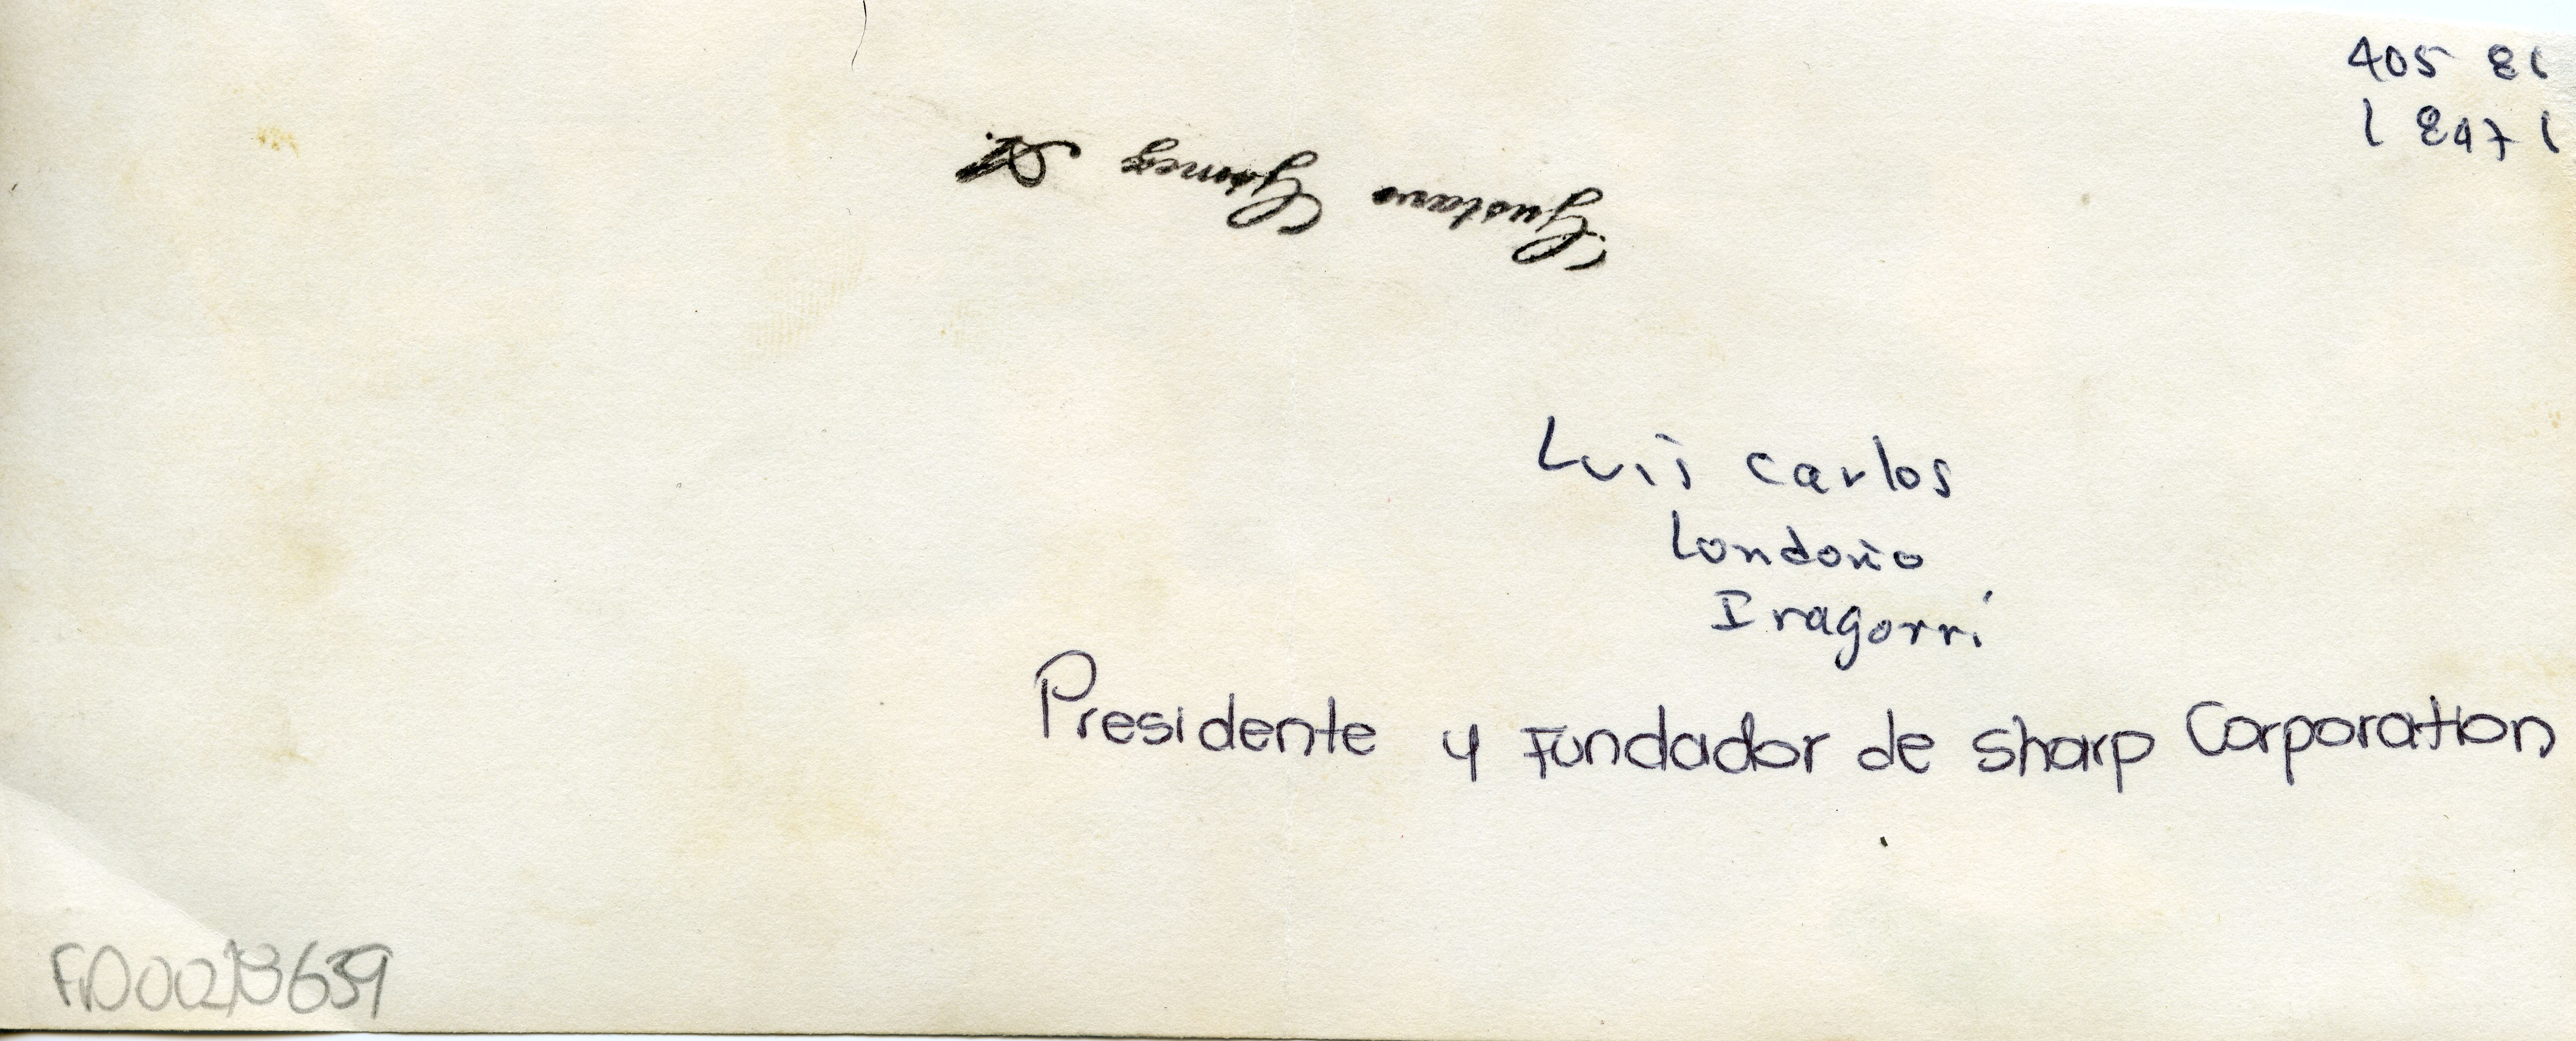 405 81
1 8471
Gustavo Gomez A.
Luis Carlos
Londoño
Iragorri
Presidente y Fundador de Sharp Corporation